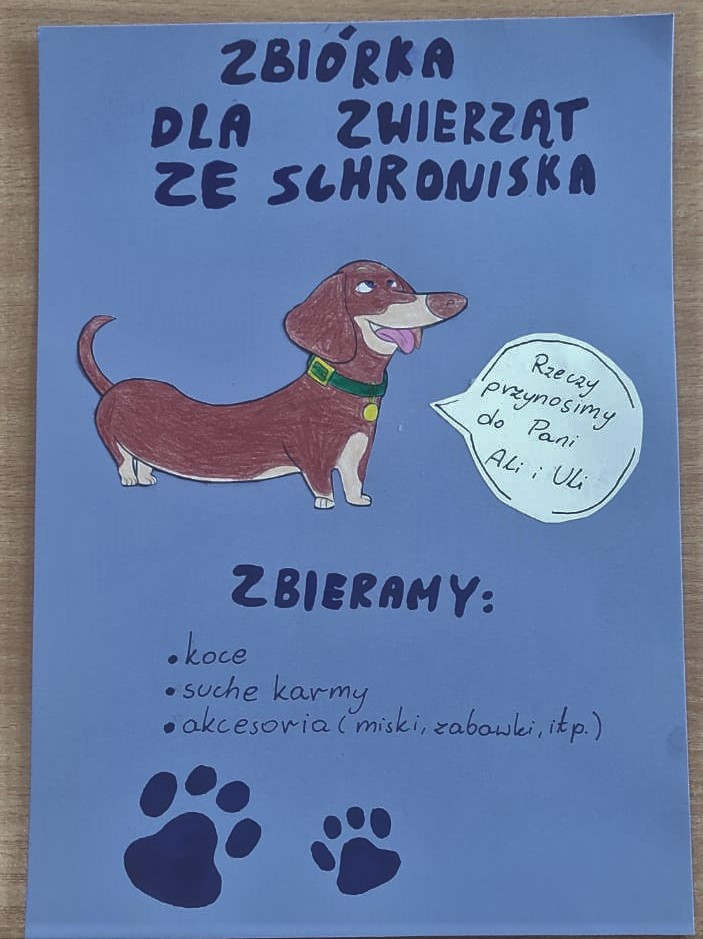 ZBIÓRKA
DLA ZWIERZĄT
ZE SCHRONISKA
Rzeczy
przynosimy
do Pani
Ali i Uli
ZBIERAMY:
• koce
• suche karmy
• akcesoria (miski, zabawki, itp.)